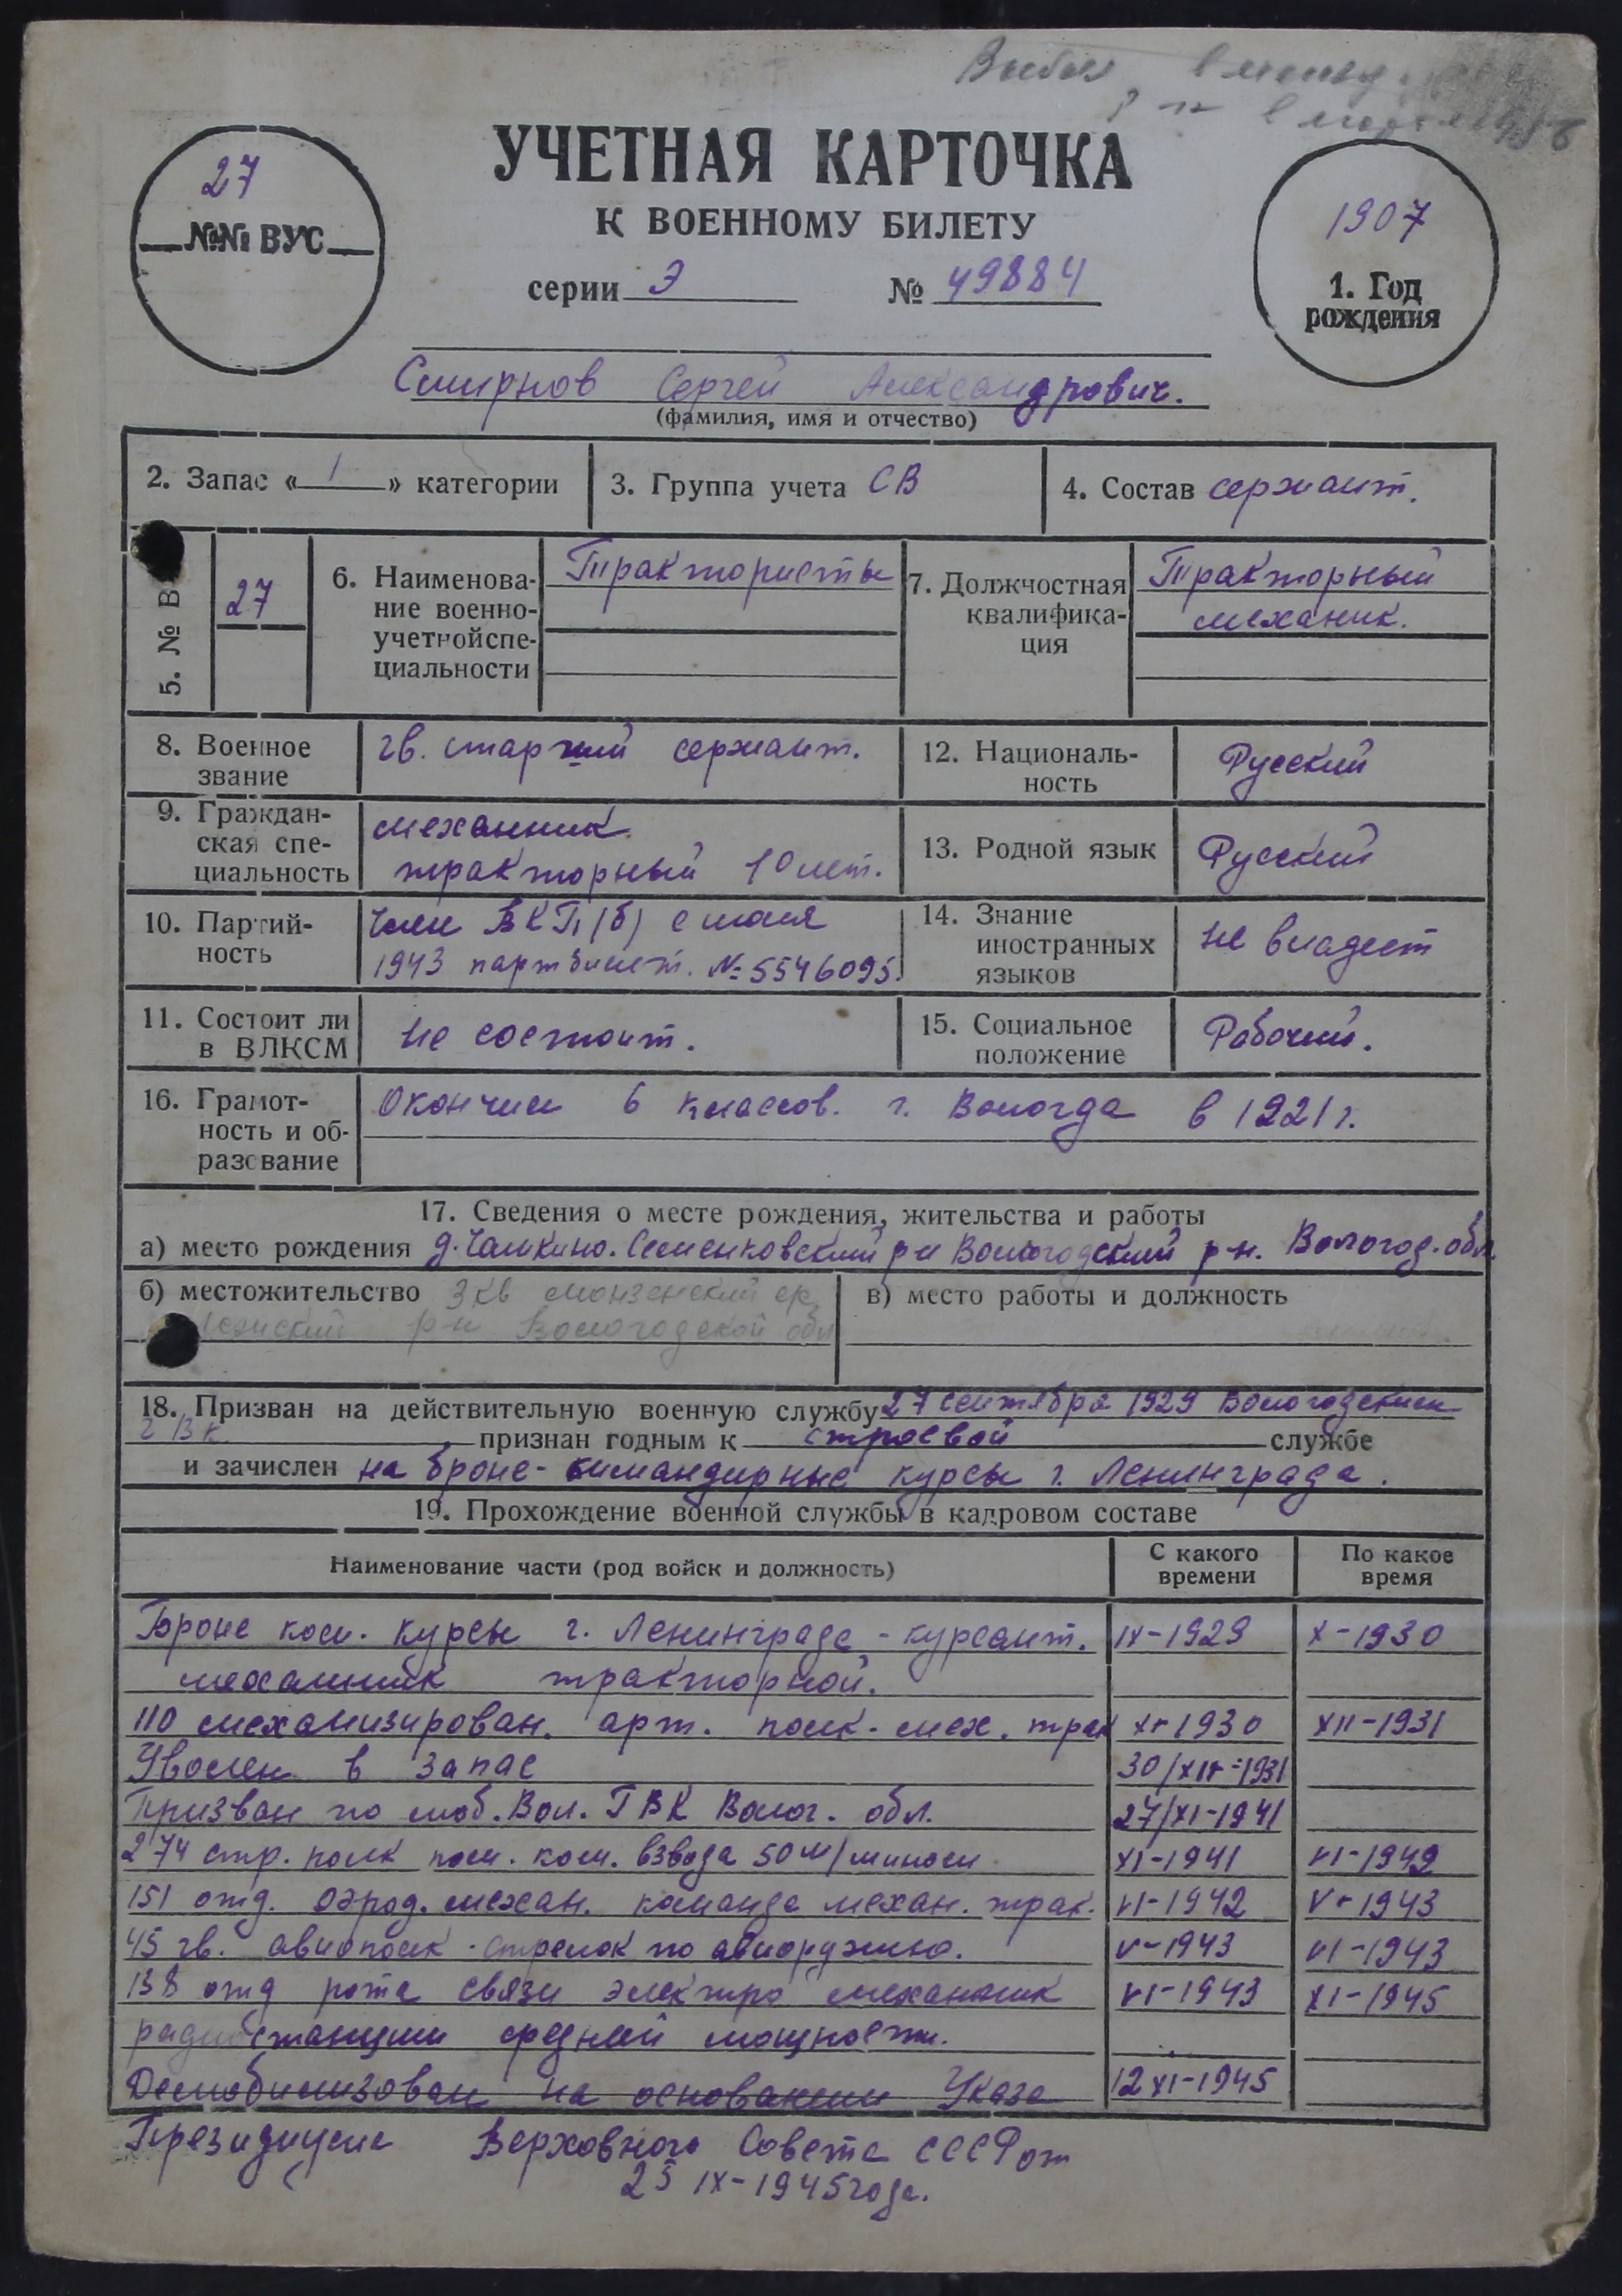 Выбыл
27
№№ ВУС
УЧЕТНАЯ КАРТОЧКА
К ВОЕННОМУ БИЛЕТУ
серии Э № 49884
1907
1. Год
рождения
Смирнов Сергей Александрович.
(фамилия, имя и отчество)
2. Запас « 1 » категории
3. Группа учета СВ
4. Состав сержант.
5. № В
27
6. Наименова-
ние военно-
учетной спе-
циальности
Трактористы
7. Должностная
квалифика-
ция
Тракторный
механик.
8. Военное
звание
гв. старший сержант.
12. Националь-
ность
Русский
9. Граждан-
ская спе-
циальность
механник
тракторный 10 лет.
13. Родной язык
Русский
10. Партий-
ность
Член ВКП(б) с мая
1943 партбилет. № 5546095.
14. Знание
иностранных
языков
не владеет
11. Состоит ли
в ВЛКСМ
не состоит.
15. Социальное
положение
Рабочий.
16. Грамот-
ность и об-
разование
Окончил 6 классов. г. Вологда в 1921 г.
17. Сведения о месте рождения, жительства и работы
а) место рождения д. Чашкино. Семенковский Вологодский р-н. Вологод. обл.
б) местожительство 3 кв Монзенский
р-н Вологодской обл
в) место работы и должность
18. Призван на действительную военную службу 27 сентября 1929 Вологодским
ГВК признан годным к строевой службе
и зачислен на броне-командирные курсы г. Ленинграда.
19. Прохождение военной службы в кадровом составе
Наименование части (род войск и должность)
С какого
времени
По какое
время
Броне ком. курсы г. Ленинграда - курсант. IX-1929 X-1930
механник тракторной.
110 механизирован. арт. полк - мех. трак X-1930 XII-1931
Уволен в запас 30/XII-1931
Призван по моб. Вол. ГВК Волог. обл. 27/XI-1941
274 стр. полк пом. ком. взвода 50 м/м мином XI-1941 VI-1942
151 отд. аэрод. механ. команда механ. трак. VI-1942 V-1943
45 гв. авиополк - стрелок по авиоружию. V-1943 VI-1943
138 отд рота связи электро механник VI-1943 XI-1945
радиостанции средней мощности.
Демобилизован на основании Указа 12 XI-1945
Президиума Верховного Совета СССР от
25 IX-1945 года.